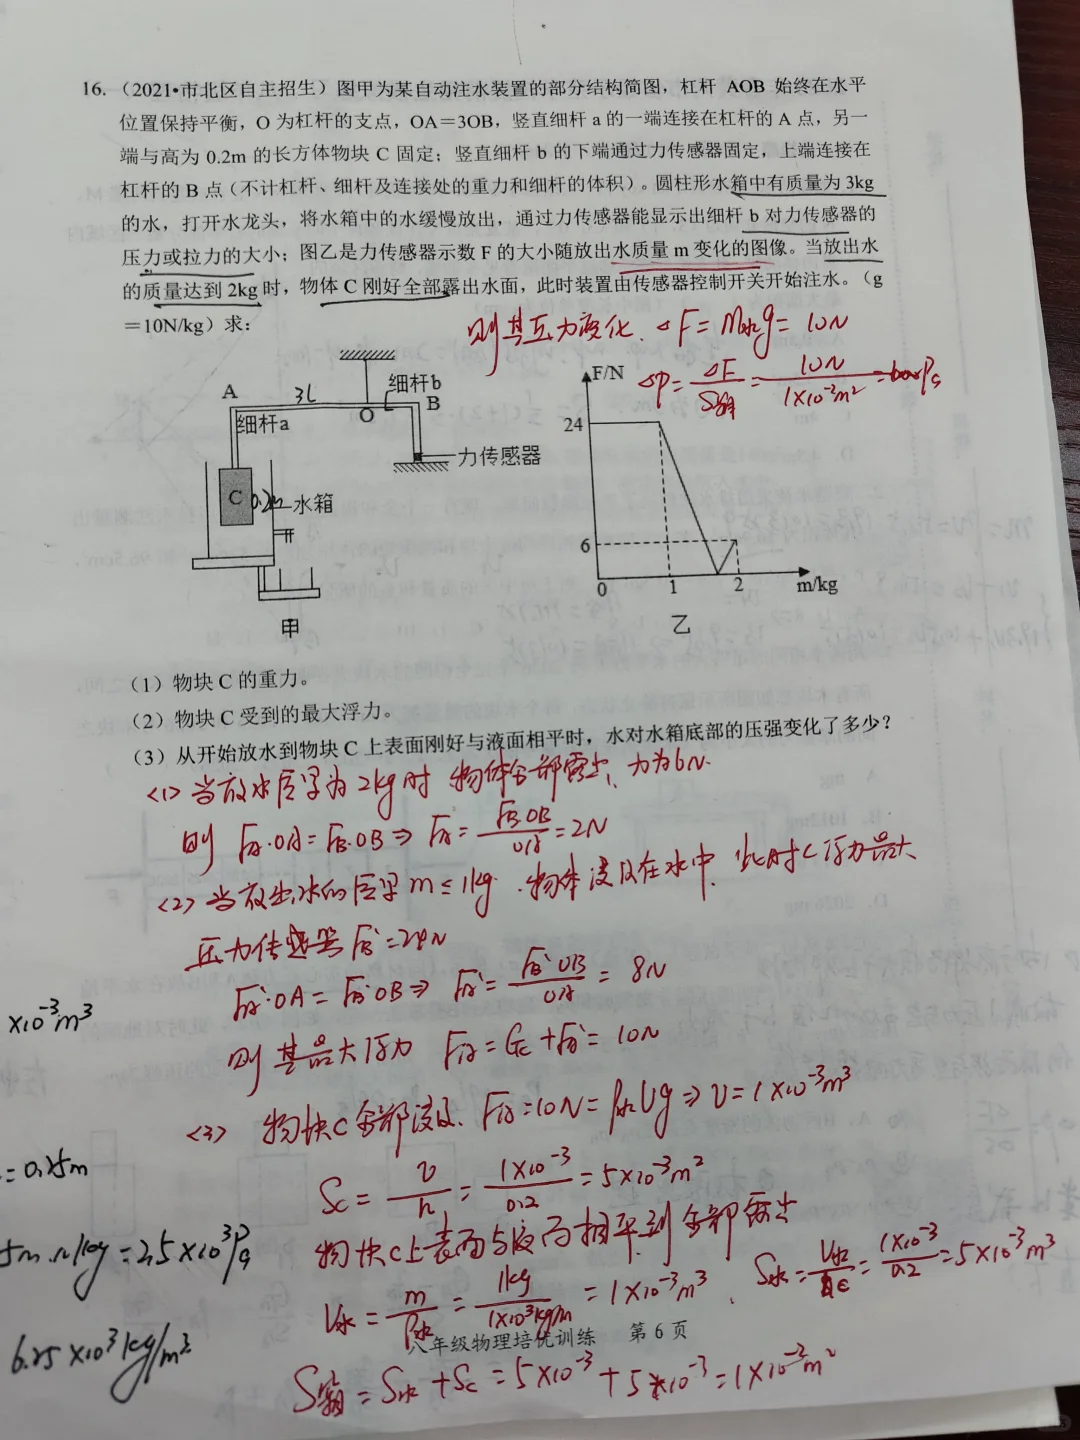 16.（2021•市北区自主招生）图甲为某自动注水装置的部分结构简图，杠杆 AOB 始终在水平
位置保持平衡，O 为杠杆的支点，OA＝3OB，竖直细杆 a 的一端连接在杠杆的 A 点，另一
端与高为 0.2m 的长方体物块 C 固定；竖直细杆 b 的下端通过力传感器固定，上端连接在
杠杆的 B 点（不计杠杆、细杆及连接处的重力和细杆的体积）。圆柱形水箱中有质量为 3kg
的水，打开水龙头，将水箱中的水缓慢放出，通过力传感器能显示出细杆 b 对力传感器的
压力或拉力的大小；图乙是力传感器示数 F 的大小随放出水质量 m 变化的图像。当放出水
的质量达到 2kg 时，物体 C 刚好全部露出水面，此时装置由传感器控制开关开始注水。（g
＝10N/kg）求：
则其压力变化 △F = m水g = 10N
△P = △F/S箱 = 10N/1×10⁻²m² =
A
3L
O
细杆b
B
细杆a
力传感器
C
0.2m
水箱
甲
F/N
24
6
0
1
2
m/kg
乙
（1）物块 C 的重力。
（2）物块 C 受到的最大浮力。
（3）从开始放水到物块 C 上表面刚好与液面相平时，水对水箱底部的压强变化了多少？
<1> 当放水质量为 2kg 时 物体全部露出，力为6N.
则 FA·OA = FB·OB ⇒ FA = FB·OB/OA = 2N
<2> 当放出水的质量 m ≤ 1kg. 物体浸没在水中, 此时C浮力最大
压力传感器 FB' = 24N
FA'·OA = FB'·OB ⇒ FA' = FB'·OB/OA = 8N
则其最大浮力 F浮 = GC + FA' = 10N
<3> 物块C全部浸没. F浮 = 10N = ρ水Vg ⇒ V = 1×10⁻³m³
SC = V/h = 1×10⁻³/0.2 = 5×10⁻³m²
物块C上表面与液面相平到全部露出
V水 = m/ρ水 = 1kg/1×10³kg/m = 1×10⁻³m³, S水 = V水/hC = 1×10⁻³/0.2 = 5×10⁻³m³
八年级物理培优训练 第 6 页
S箱 = S水 + SC = 5×10⁻³ + 5×10⁻³ = 1×10⁻²m²
×10⁻³m³
= 0.25m
5m·N/kg = 2.5×10³Pa
6.25×10³kg/m³